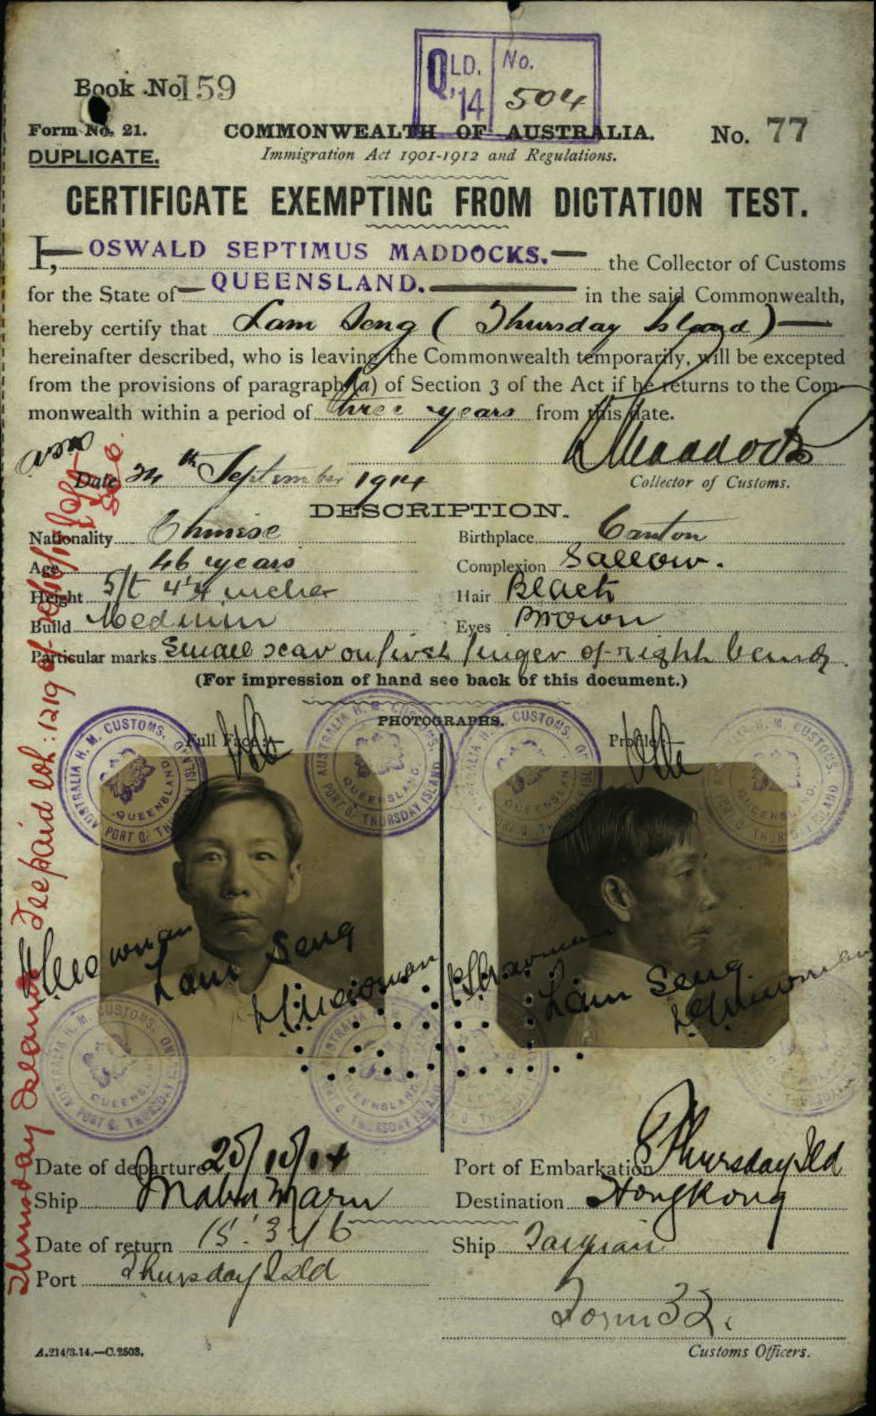 QLD. No.
'14 504
Book No 159
Form No. 21. COMMONWEALTH OF AUSTRALIA. No. 77
DUPLICATE. Immigration Act 1901-1912 and Regulations.
CERTIFICATE EXEMPTING FROM DICTATION TEST.
I, OSWALD SEPTIMUS MADDOCKS. the Collector of Customs
for the State of QUEENSLAND. in the said Commonwealth,
hereby certify that Lam Seng (Thursday Island)
hereinafter described, who is leaving the Commonwealth temporarily, will be excepted
from the provisions of paragraph (a) of Section 3 of the Act if he returns to the Com-
monwealth within a period of three years from this date.
Date 24th September 1914 Collector of Customs.
DESCRIPTION.
Nationality Chinese Birthplace Canton
Age 46 years Complexion Sallow.
Height 5ft 4¼ inches Hair Black
Build Medium Eyes Brown
Particular marks Small scar on first finger of right hand.
(For impression of hand see back of this document.)
PHOTOGRAPHS.
Full Face Profile
H. M. CUSTOMS. QUEENSLAND. PORT OF THURSDAY ISLAND AUSTRALIA
Lam Seng Lam Seng
Date of departure 25/10/14 Port of Embarkation Thursday Isld
Ship Destination Hongkong
Date of return 15.3.16 Ship Taiyuan
Port Thursday Isld
Form 32.
A.214/3.14.—C.2503. Customs Officers.
Thursday Island